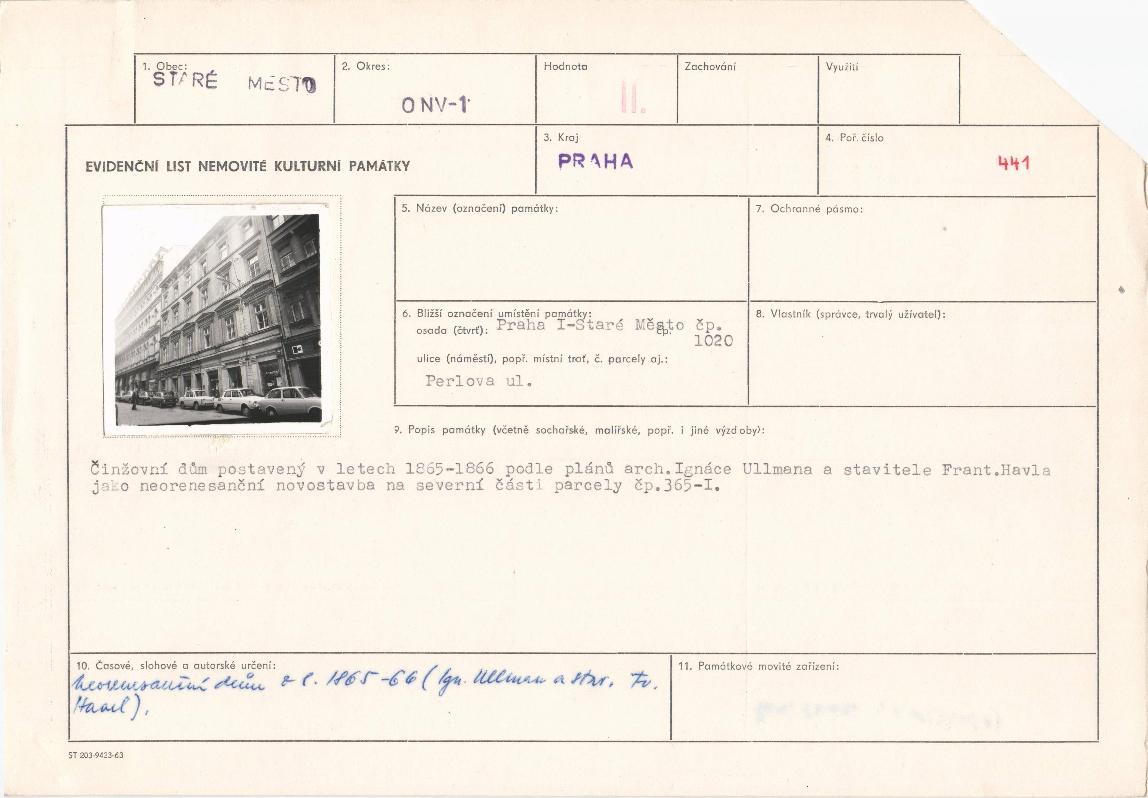 1. Obec:
STARÉ MĚSTO
2. Okres:
ONV-1
Hodnota
II.
Zachování
Využití
EVIDENČNÍ LIST NEMOVITÉ KULTURNÍ PAMÁTKY
3. Kraj
PRAHA
4. Poř. číslo
441
5. Název (označení) památky:
7. Ochranné pásmo:
6. Bližší označení umístění památky:
osada (čtvrť): Praha I-Staré Město čp.
1020
ulice (náměstí), popř. místní trať, č. parcely aj.:
Perlova ul.
8. Vlastník (správce, trvalý uživatel):
9. Popis památky (včetně sochařské, malířské, popř. i jiné výzdoby):
Činžovní dům postavený v letech 1865-1866 podle plánů arch.Ignáce Ullmana a stavitele Frant.Havla
jako neorenesanční novostavba na severní části parcely čp.365-I.
10. Časové, slohové a autorské určení:
Neorenesanční dům z l. 1865-66 (Ign. Ullman a stav. Fr.
Havel).
11. Památkové movité zařízení:
ST 203-9423-63